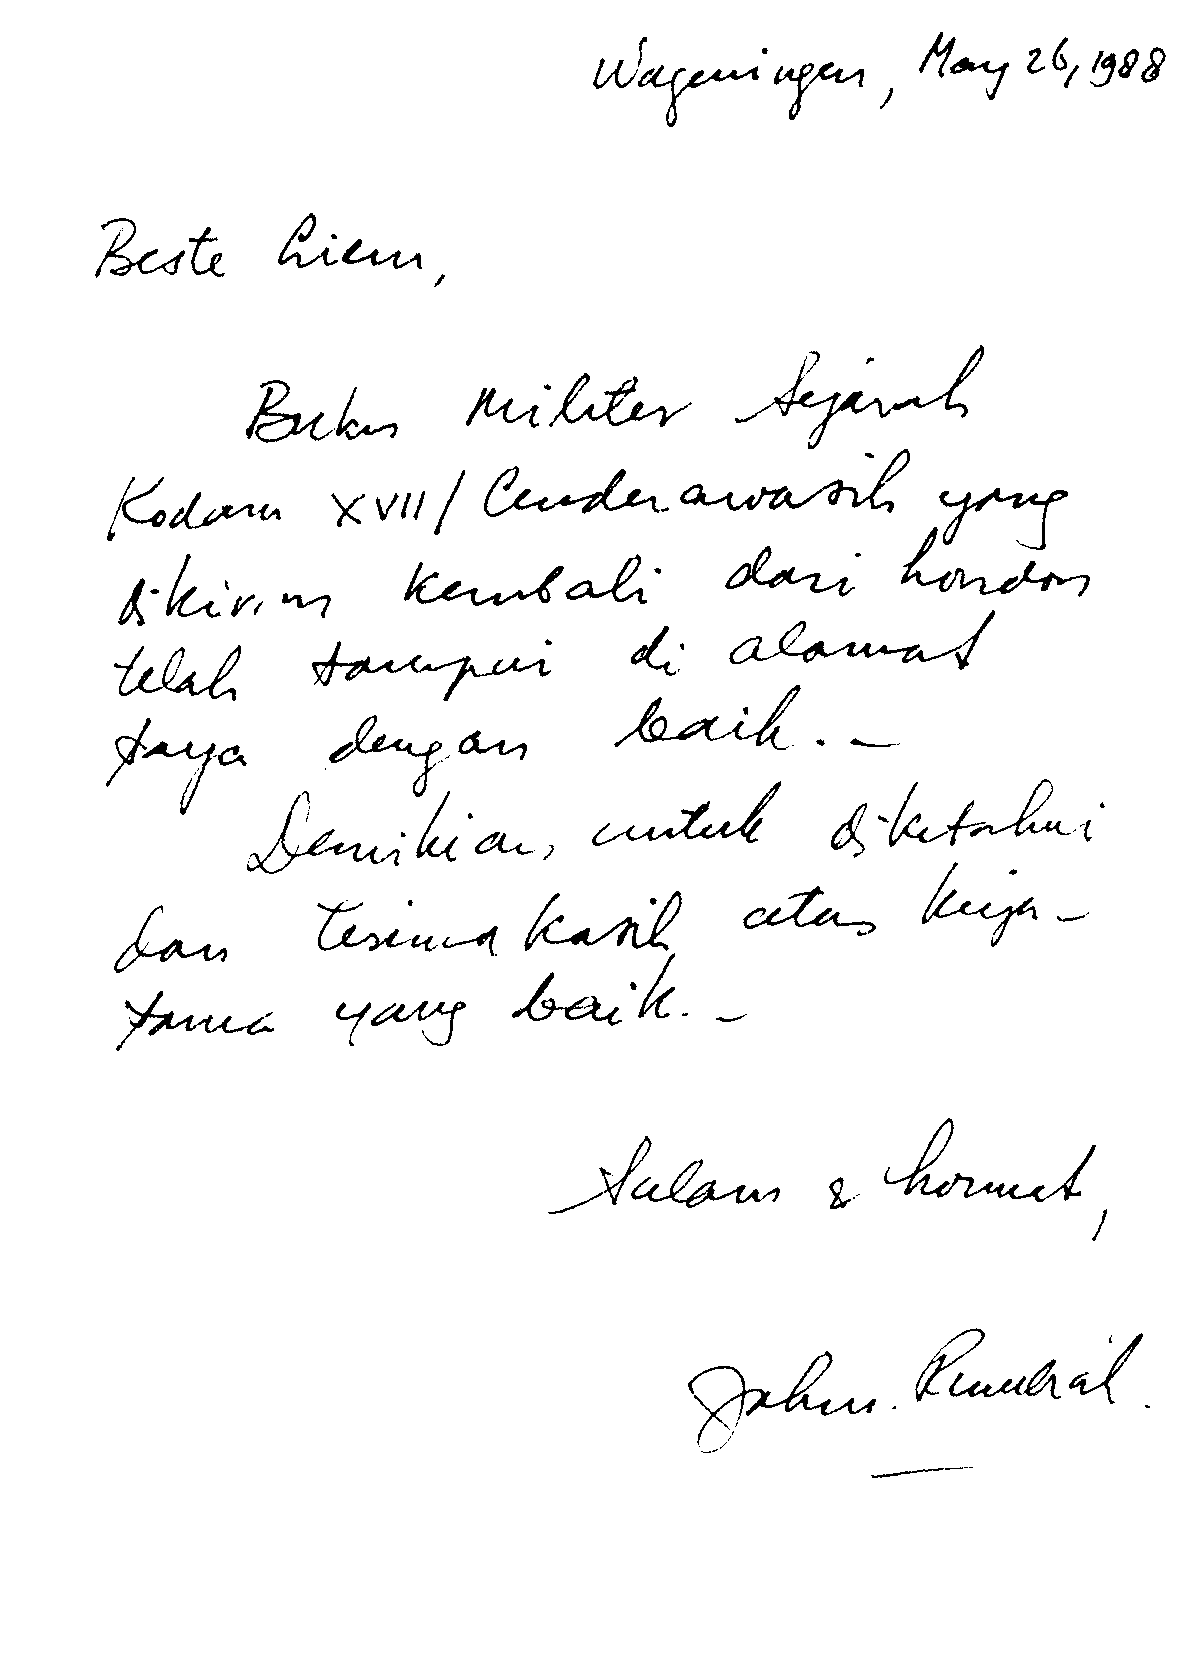 Wageningen, May 26, 1988
Beste Liem,
Buku Militer Sejarah
Kodam XVII/Cenderawasih yang
dikirim kembali dari London
telah sampai di alamat
saya dengan baik. -
Demikian, untuk diketahui
dan terimakasih atas kerja-
sama yang baik. -
Salam & hormat,
John.